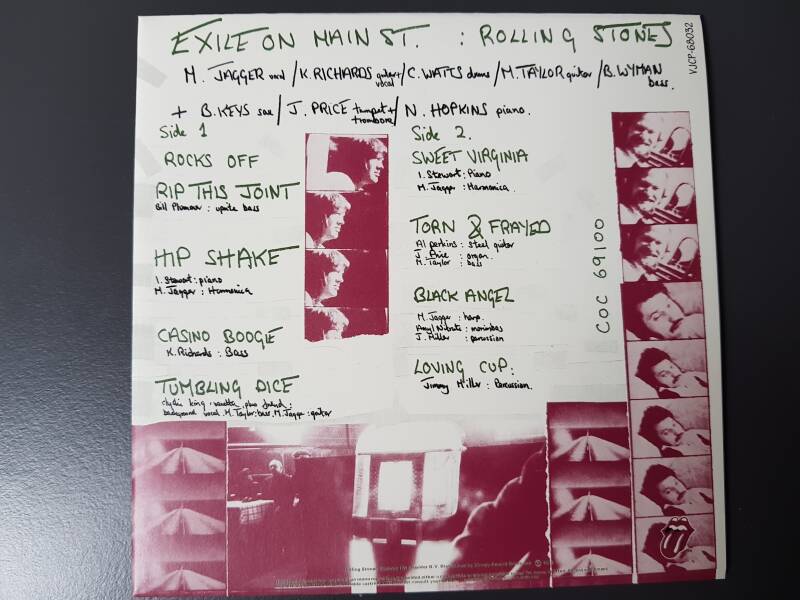 EXILE ON MAIN ST. : ROLLING STONES
VJCP-68032
M. JAGGER vocal / K. RICHARDS guitar + vocal / C. WATTS drums / M. TAYLOR guitar / B. WYMAN bass.
+ B. KEYS sax / J. PRICE trumpet + trombone / N. HOPKINS piano.
Side 1
ROCKS OFF
RIP THIS JOINT
Bill Plummer : uprite bass
HIP SHAKE
I. Stewart : piano
M. Jagger : Harmonica
CASINO BOOGIE
K. Richards : Bass
TUMBLING DICE
clydie king : vanetta, plus friend :
background vocal. M. Taylor : bass. M. Jagger : guitar
Side 2.
SWEET VIRGINIA
I. Stewart : Piano
M. Jagger : Harmonica.
TORN & FRAYED
Al perkins : steel guitar
J. Price : organ.
M. Taylor : bass
BLACK ANGEL
M. Jagger : harp.
Amyl Nitrate : marimbas
J. Miller : percussion
LOVING CUP:
Jimmy Miller : Percussion.
COC 69100